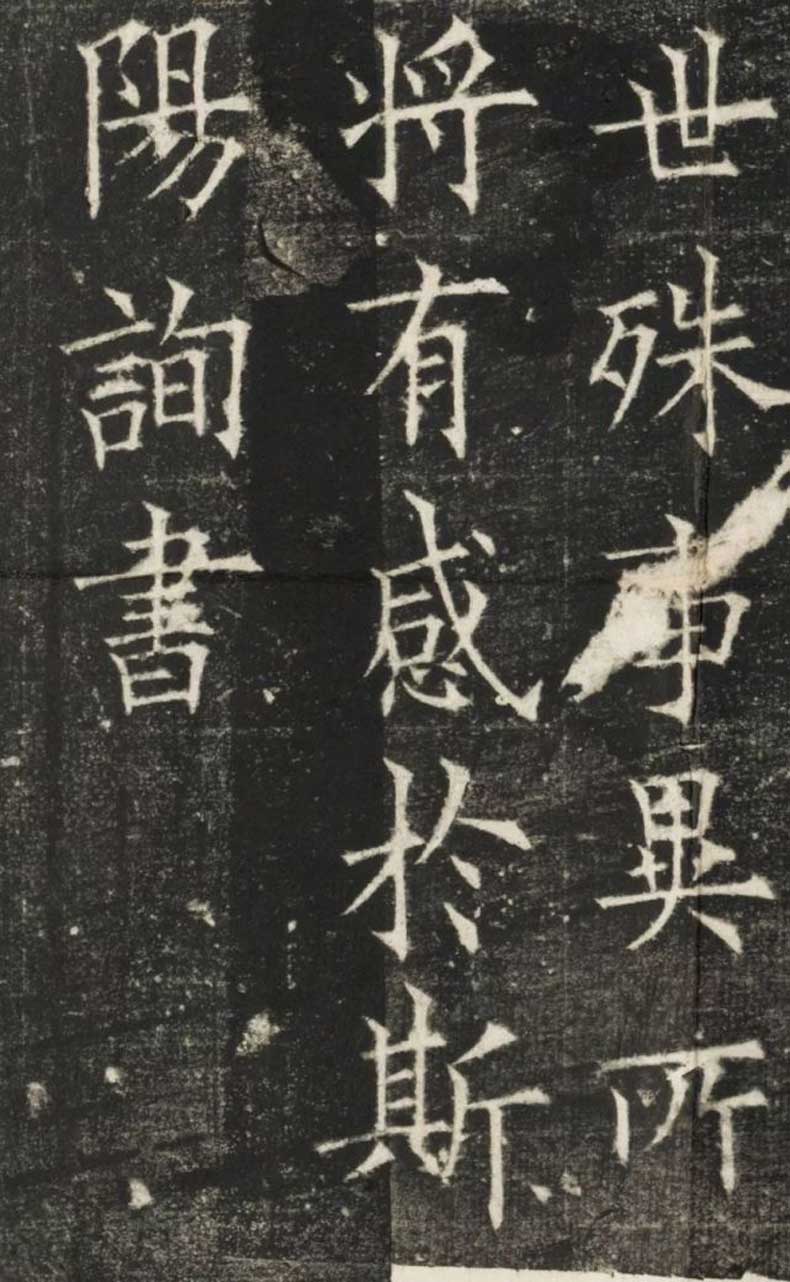 世殊事異所
将有感於斯
陽詢書